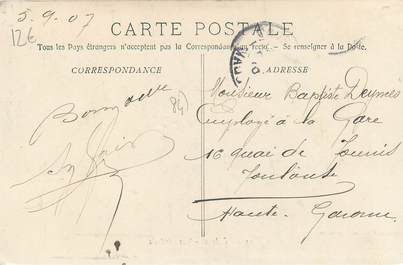 5.9.07
12€
CARTE POSTALE
Tous les Pays étrangers n'acceptent pas la Correspondance au recto. - Se renseigner à la Poste.
CORRESPONDANCE
ADRESSE
84
Monsieur Baptiste Deymès
Employé à la Gare
16 quai de Tounis
Toulouse
Haute-Garonne